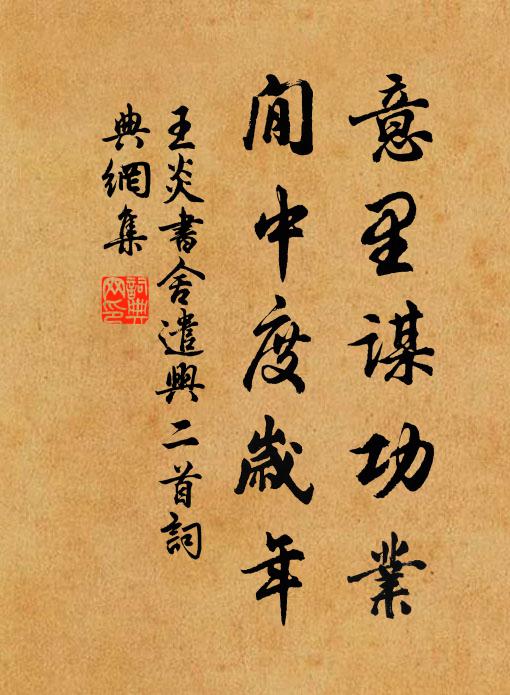 意里謀功業
閒中度歲年
王炎書舍遣興二首詞
典網集
詞典网印